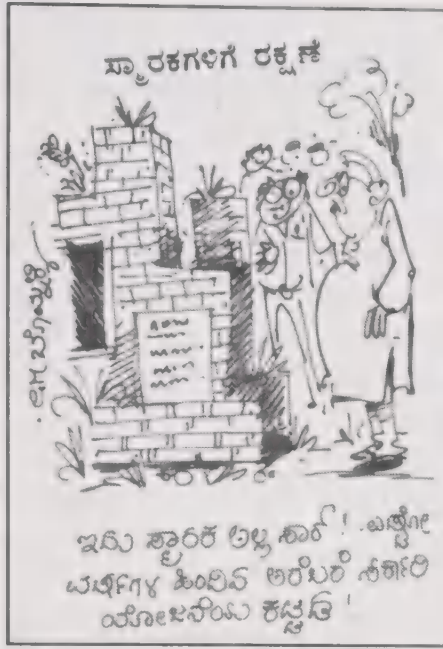 ಸ್ಮಾರಕಗಳಿಗೆ ರಕ್ಷಣೆ
ಇದು ಸ್ಮಾರಕ ಅಲ್ಲ ಸಾರ್ ! ಎಷ್ಟೋ
ವರ್ಷಗಳ ಹಿಂದಿನ ಅರೆಬರೆ ಸರ್ಕಾರಿ
ಯೋಜನೆಯ ಕಟ್ಟಡ !